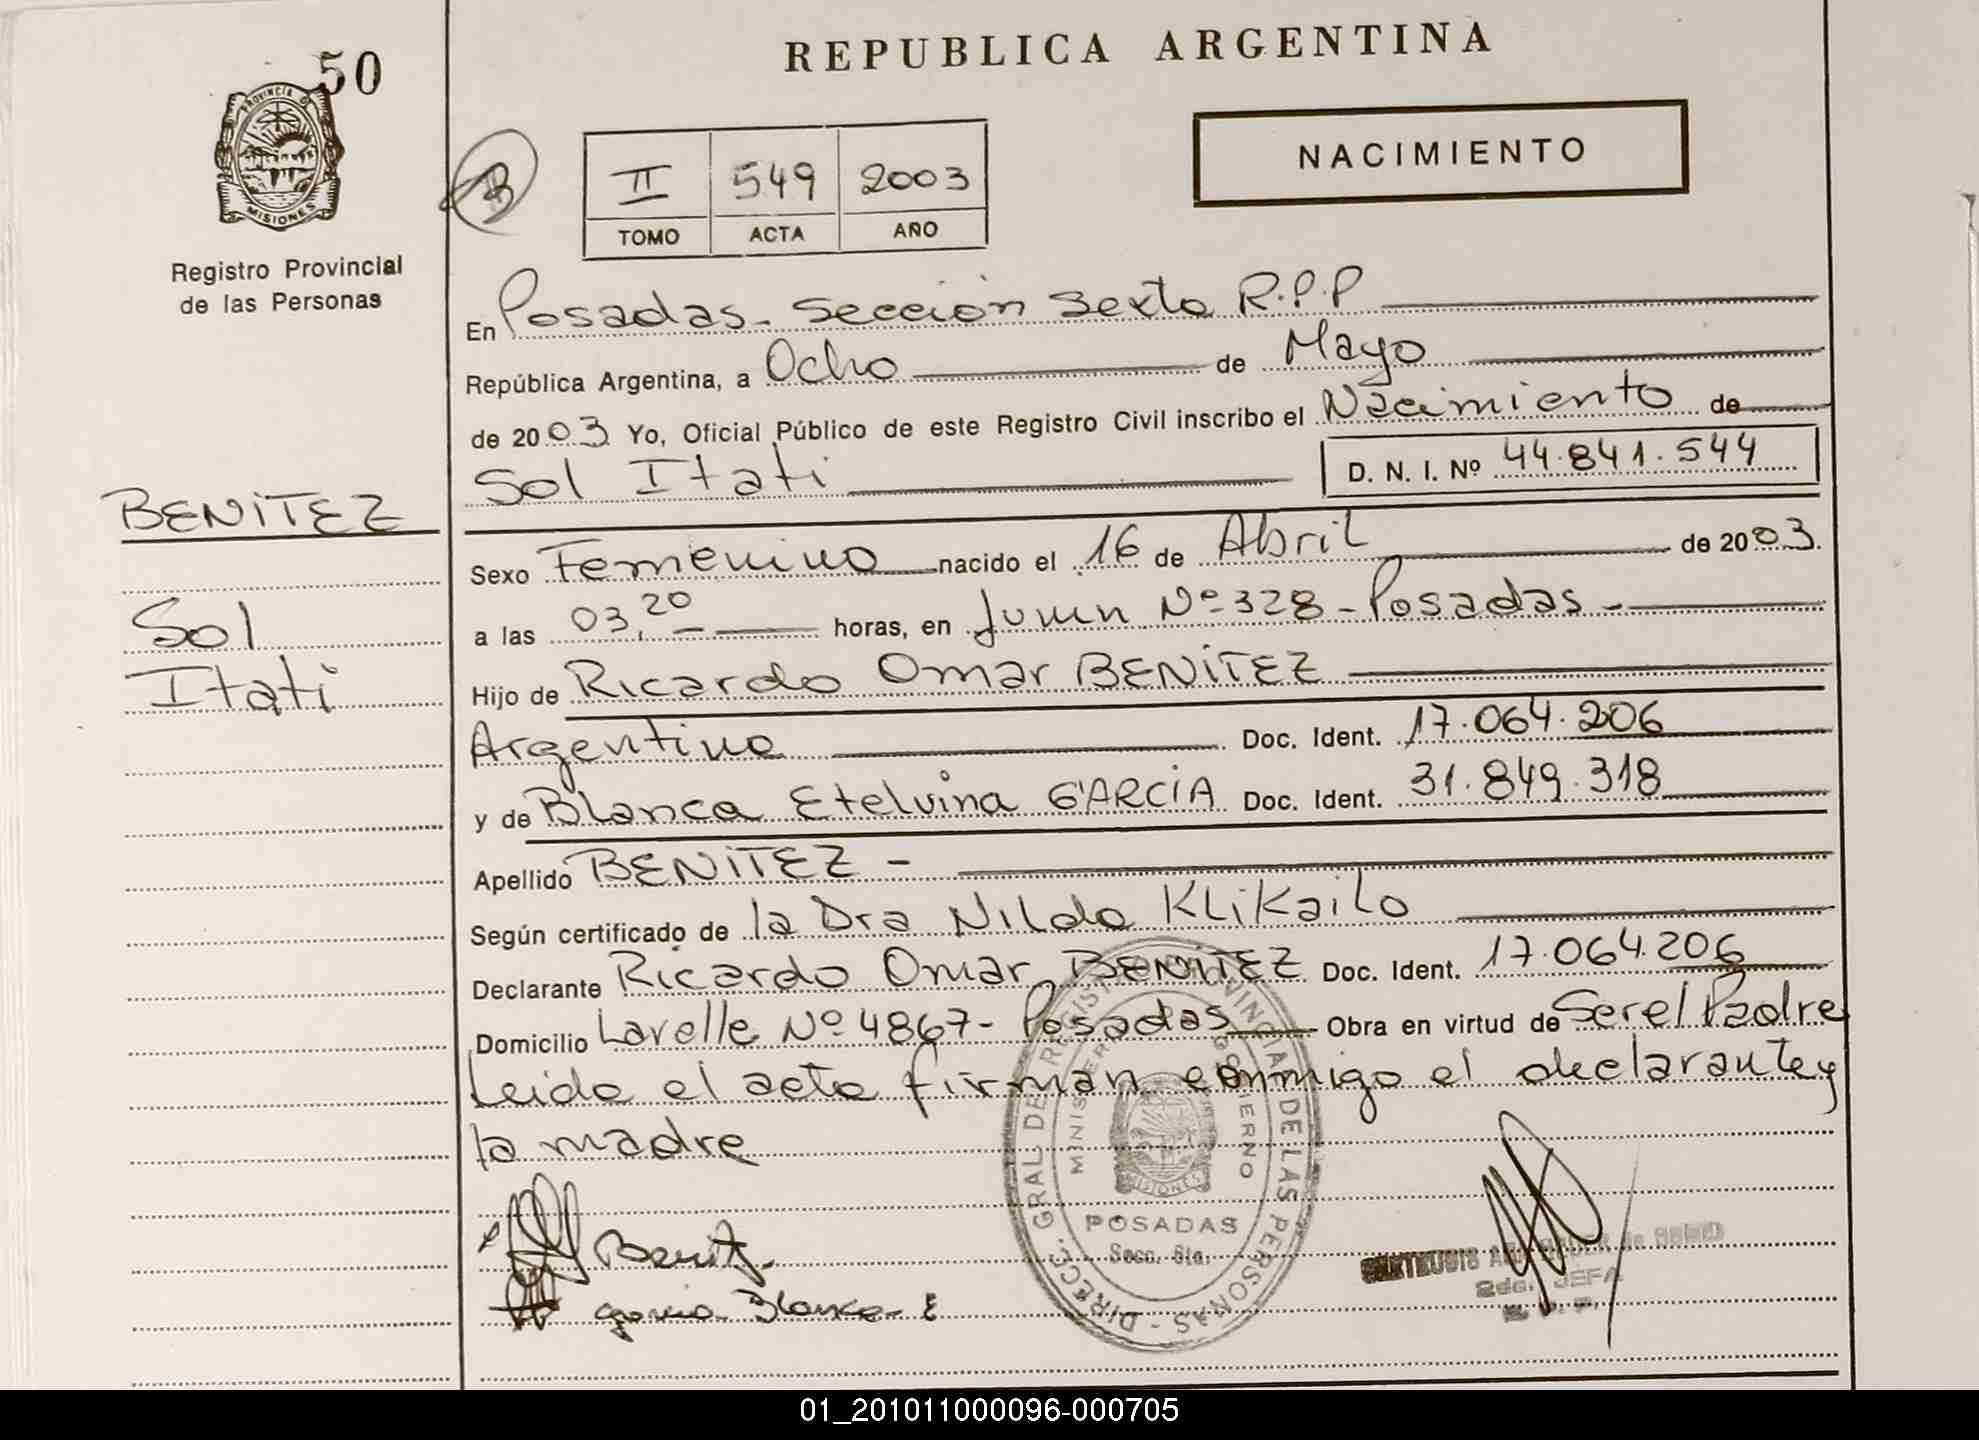 REPUBLICA ARGENTINA
50
PROVINCIA DE
MISIONES
Registro Provincial
de las Personas
B
II 549 2003
TOMO ACTA AÑO
NACIMIENTO
En Posadas - Sección Sexta R.P.P
República Argentina, a Ocho de Mayo
de 2003 Yo, Oficial Público de este Registro Civil inscribo el Nacimiento de
Sol Itati D. N. I. Nº 44.841.544
BENITEZ
Sol
Itati
Sexo Femenino nacido el 16 de Abril de 2003.
a las 03,20 horas, en Junin Nº 328 - Posadas -
Hijo de Ricardo Omar BENITEZ
Argentina Doc. Ident. 17.064.206
y de Blanca Etelvina GARCIA Doc. Ident. 31.849.318
Apellido BENITEZ -
Según certificado de la Dra Nilda Klikailo
Declarante Ricardo Omar BENITEZ Doc. Ident. 17.064.206
Domicilio Lavalle Nº 4867 - Posadas Obra en virtud de Ser el Padre
Leida el acta firman conmigo el declarante y
la madre
Benit
garcia Blanca E
DIRECC. GRAL DE REGISTRO PROVINCIAL DE LAS PERSONAS -
MINISTERIO GOBIERNO
MISIONES
POSADAS
Secc. 6ta.
2da. JEFA
01_201011000096-000705